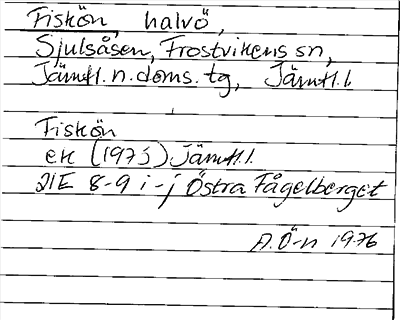 Fiskön, halvö,
Sjulsåsen, Frostvikens sn,
Jämtl. n. doms. tg, Jämtl. l.
Fiskön
ek (1975) Jämtl. l.
21E 8-9 i-j Östra Fågelberget
A. Ö-n 1976